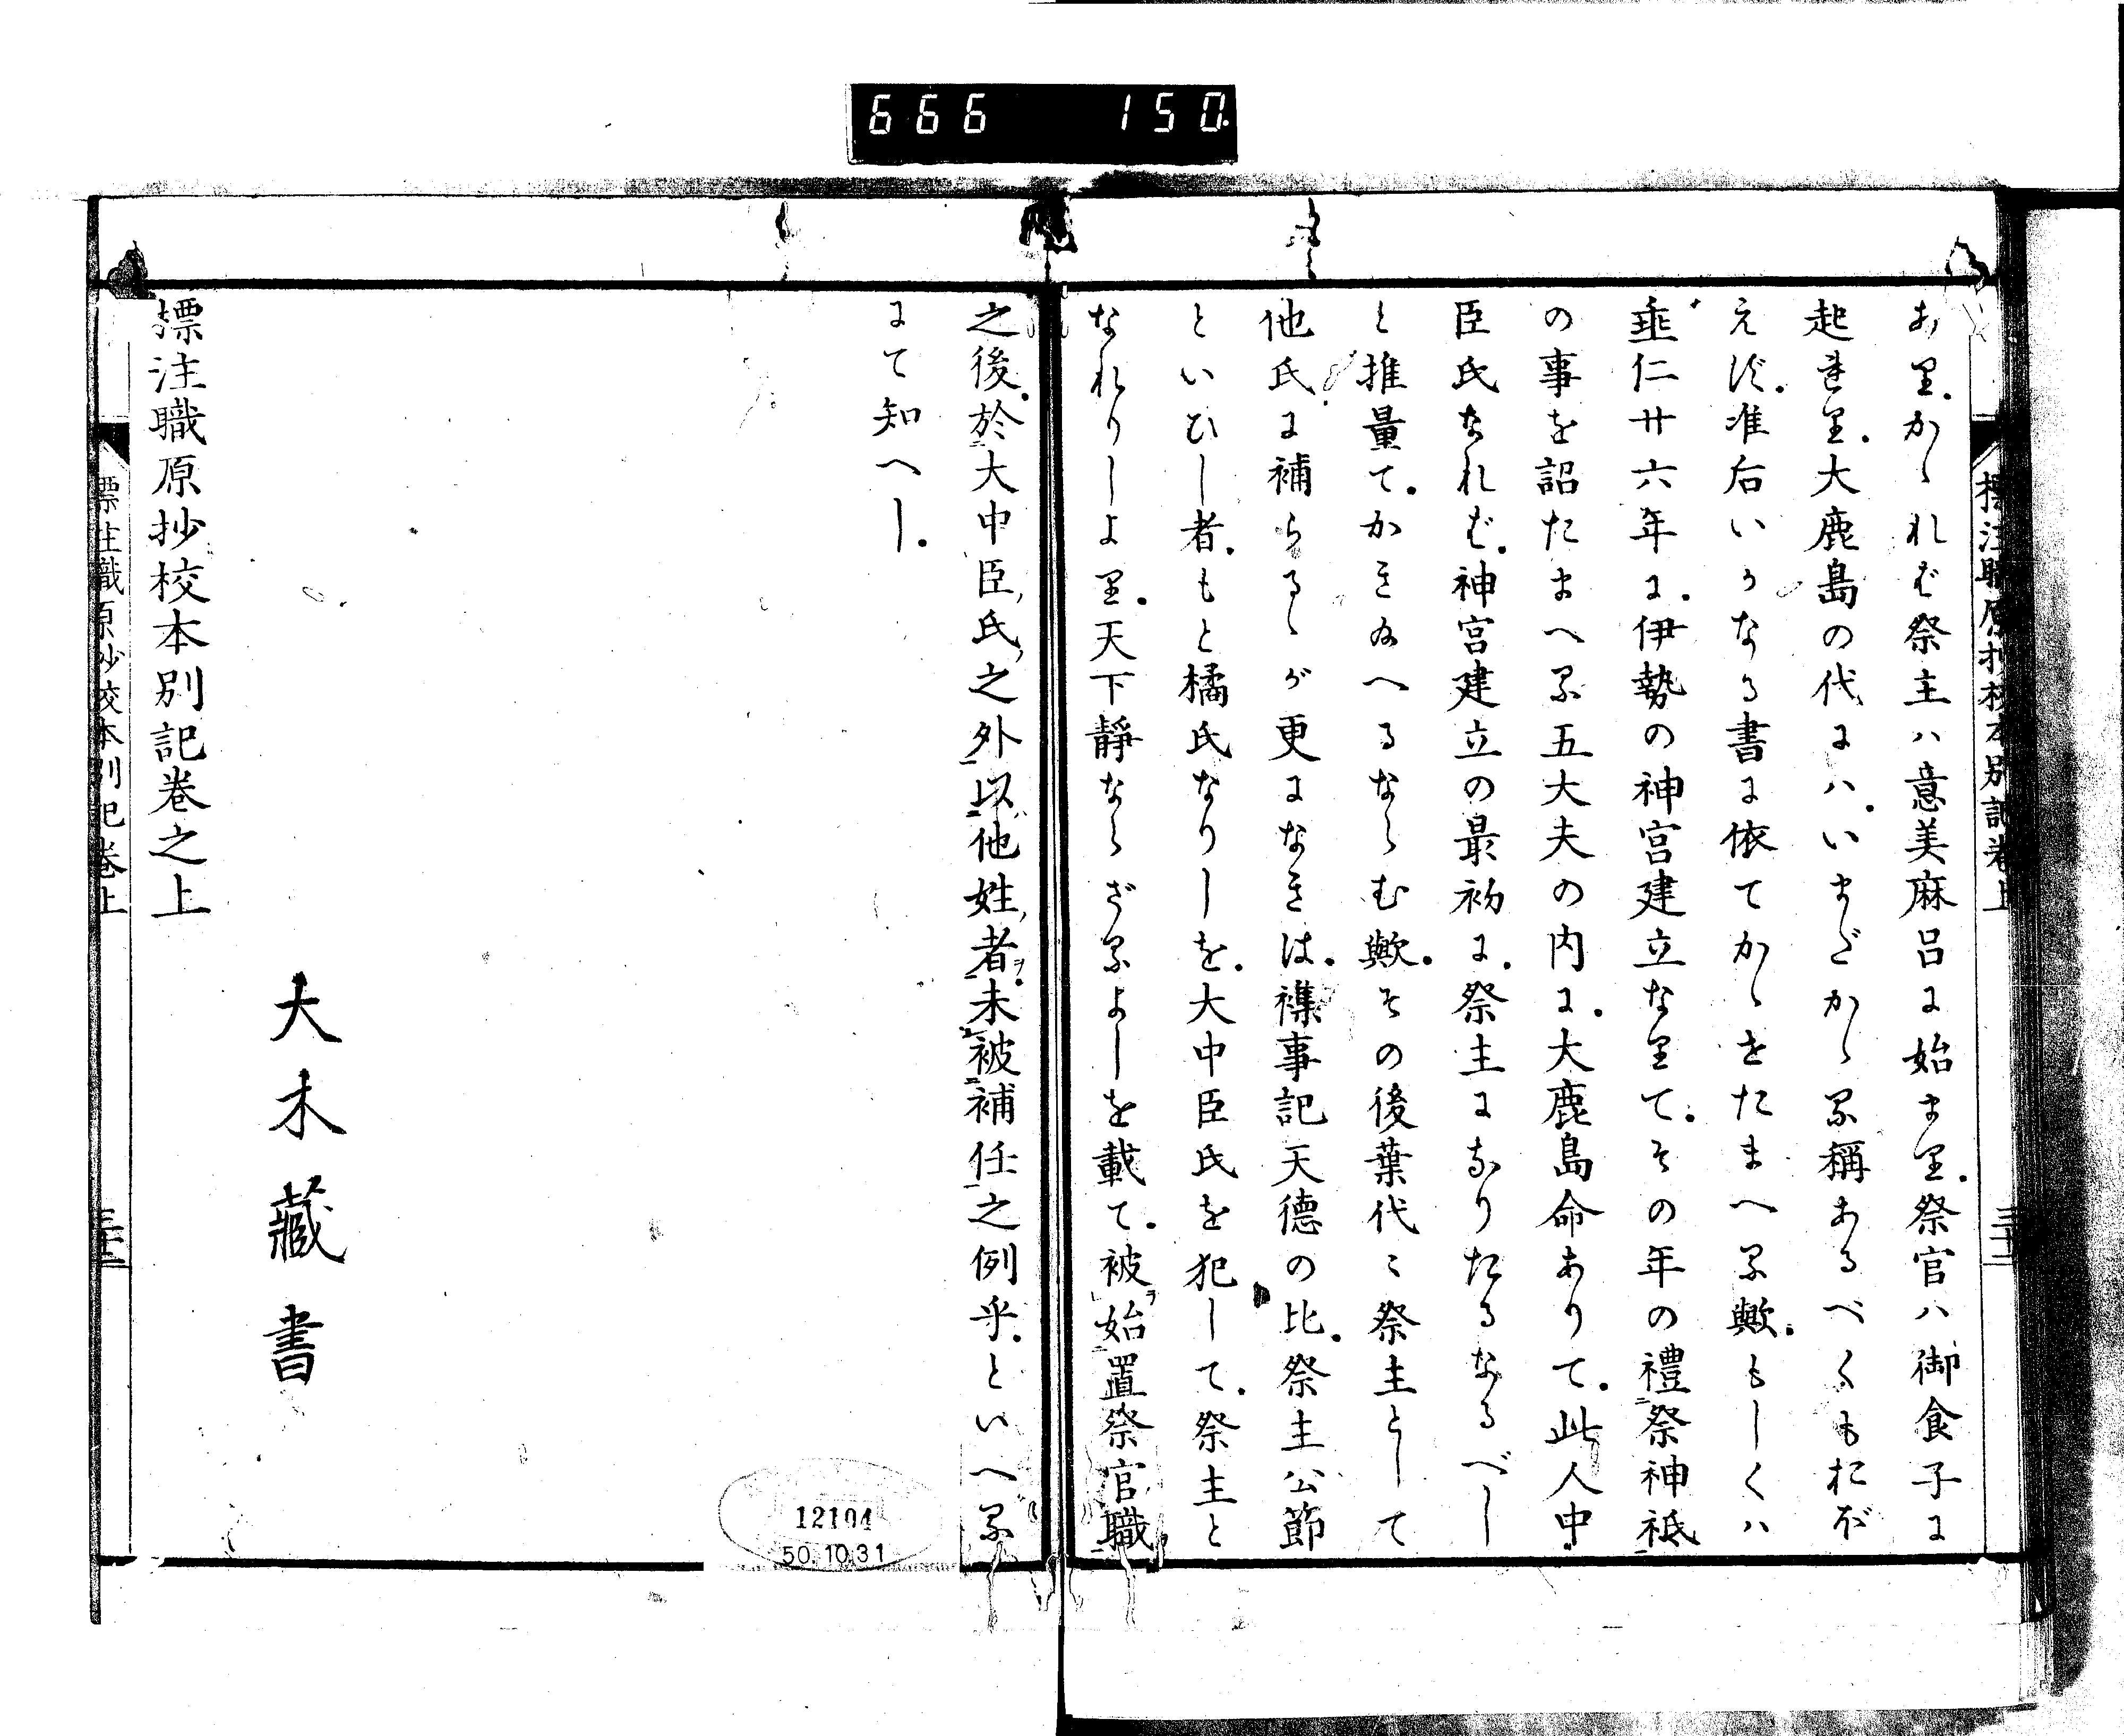 666 150.
標注職原抄校本別記卷上
あり。かゝれバ祭主ハ意美麻呂に始まり。祭官ハ御食子に
起れり。大鹿島の代にハ。いまだかゝる稱あるべくもおぼ
えず。准后いかなる書に依てかゝせたまへる歟。もしくハ
垂仁廿六年に。伊勢の神宮建立なりて。その年の禮祭神祇
の事を詔たまへる五大夫の内に。大鹿島命ありて。此人中
臣氏なれば。神宮建立の最初に。祭主になりたるなるべし
と推量て。かき給へるならむ歟。その後葉代々祭主として
他氏に補らるゝが更になきは。襍事記天德の比。祭主公節
といひし者。もと橘氏なりしを。大中臣氏を犯して。祭主と
なれりしより。天下靜ならざるよしを載て。被始置祭官職
之後。於大中臣氏之外以他姓者。未被補任之例乎。といへる
にて知へし。
12104
50.10.31
大木藏書
標注職原抄校本別記卷之上
標注職原抄校本別記卷上